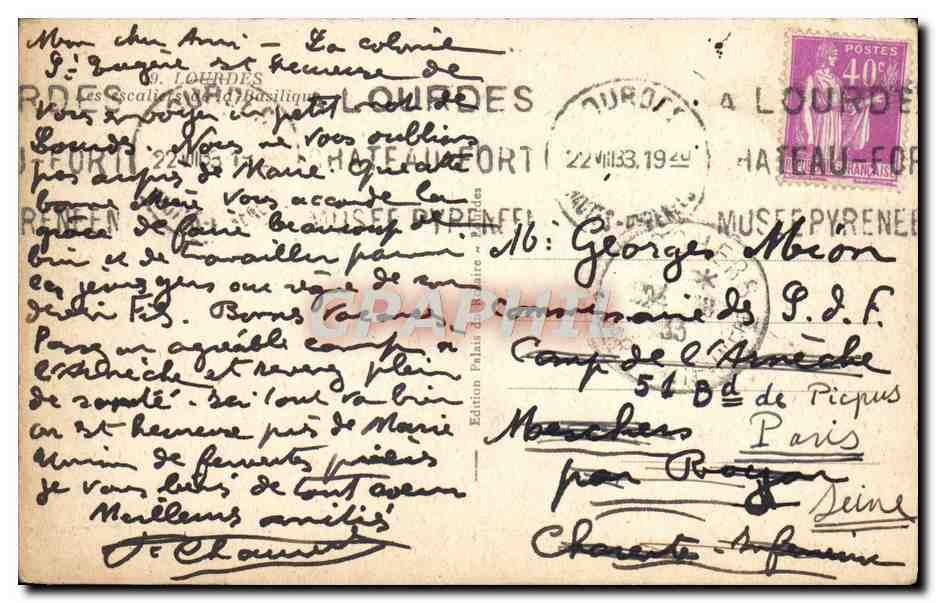 Mon cher Ami - La colonie
St Eugène est heureuse de
9. LOURDES
Les escaliers de la Basilique
vous envoyer un petit mot de
Lourdes. Nous ne vous oublions
pas auprès de Marie. Que cette
bonne Mère vous accorde la
grâce de faire beaucoup de
bien et de travailler parmi
ces jeunes gens au règne de son
divin Fils. Bonnes Vacances.
Passez un agréable camp à
l'Arnèche et revenez plein
de santé. Ici tout va bien
on est heureux près de Marie
Union de ferventes prières
Je vous bénis de tout coeur
Meilleures amitiés
Edition Palais du Rosaire - Lourdes
LOURDES
22 VIII 33. 19
A LOURDES
CHATEAU-FORT
MUSEE PYRENEEN
LOURDES
22 VIII 33. 19 20
HTES-PYRENEES
A LOURDES
CHATEAU-FORT
MUSEE PYRENEEN
POSTES
40c
FRANÇAISE
M: Georges Mion
Commissaire des S. d. F.
Camp de l'Arnèche
51 Bd de Picpus
Meschers
Paris
par Royan
Seine
Charente-Inférieure
CPAPHIL